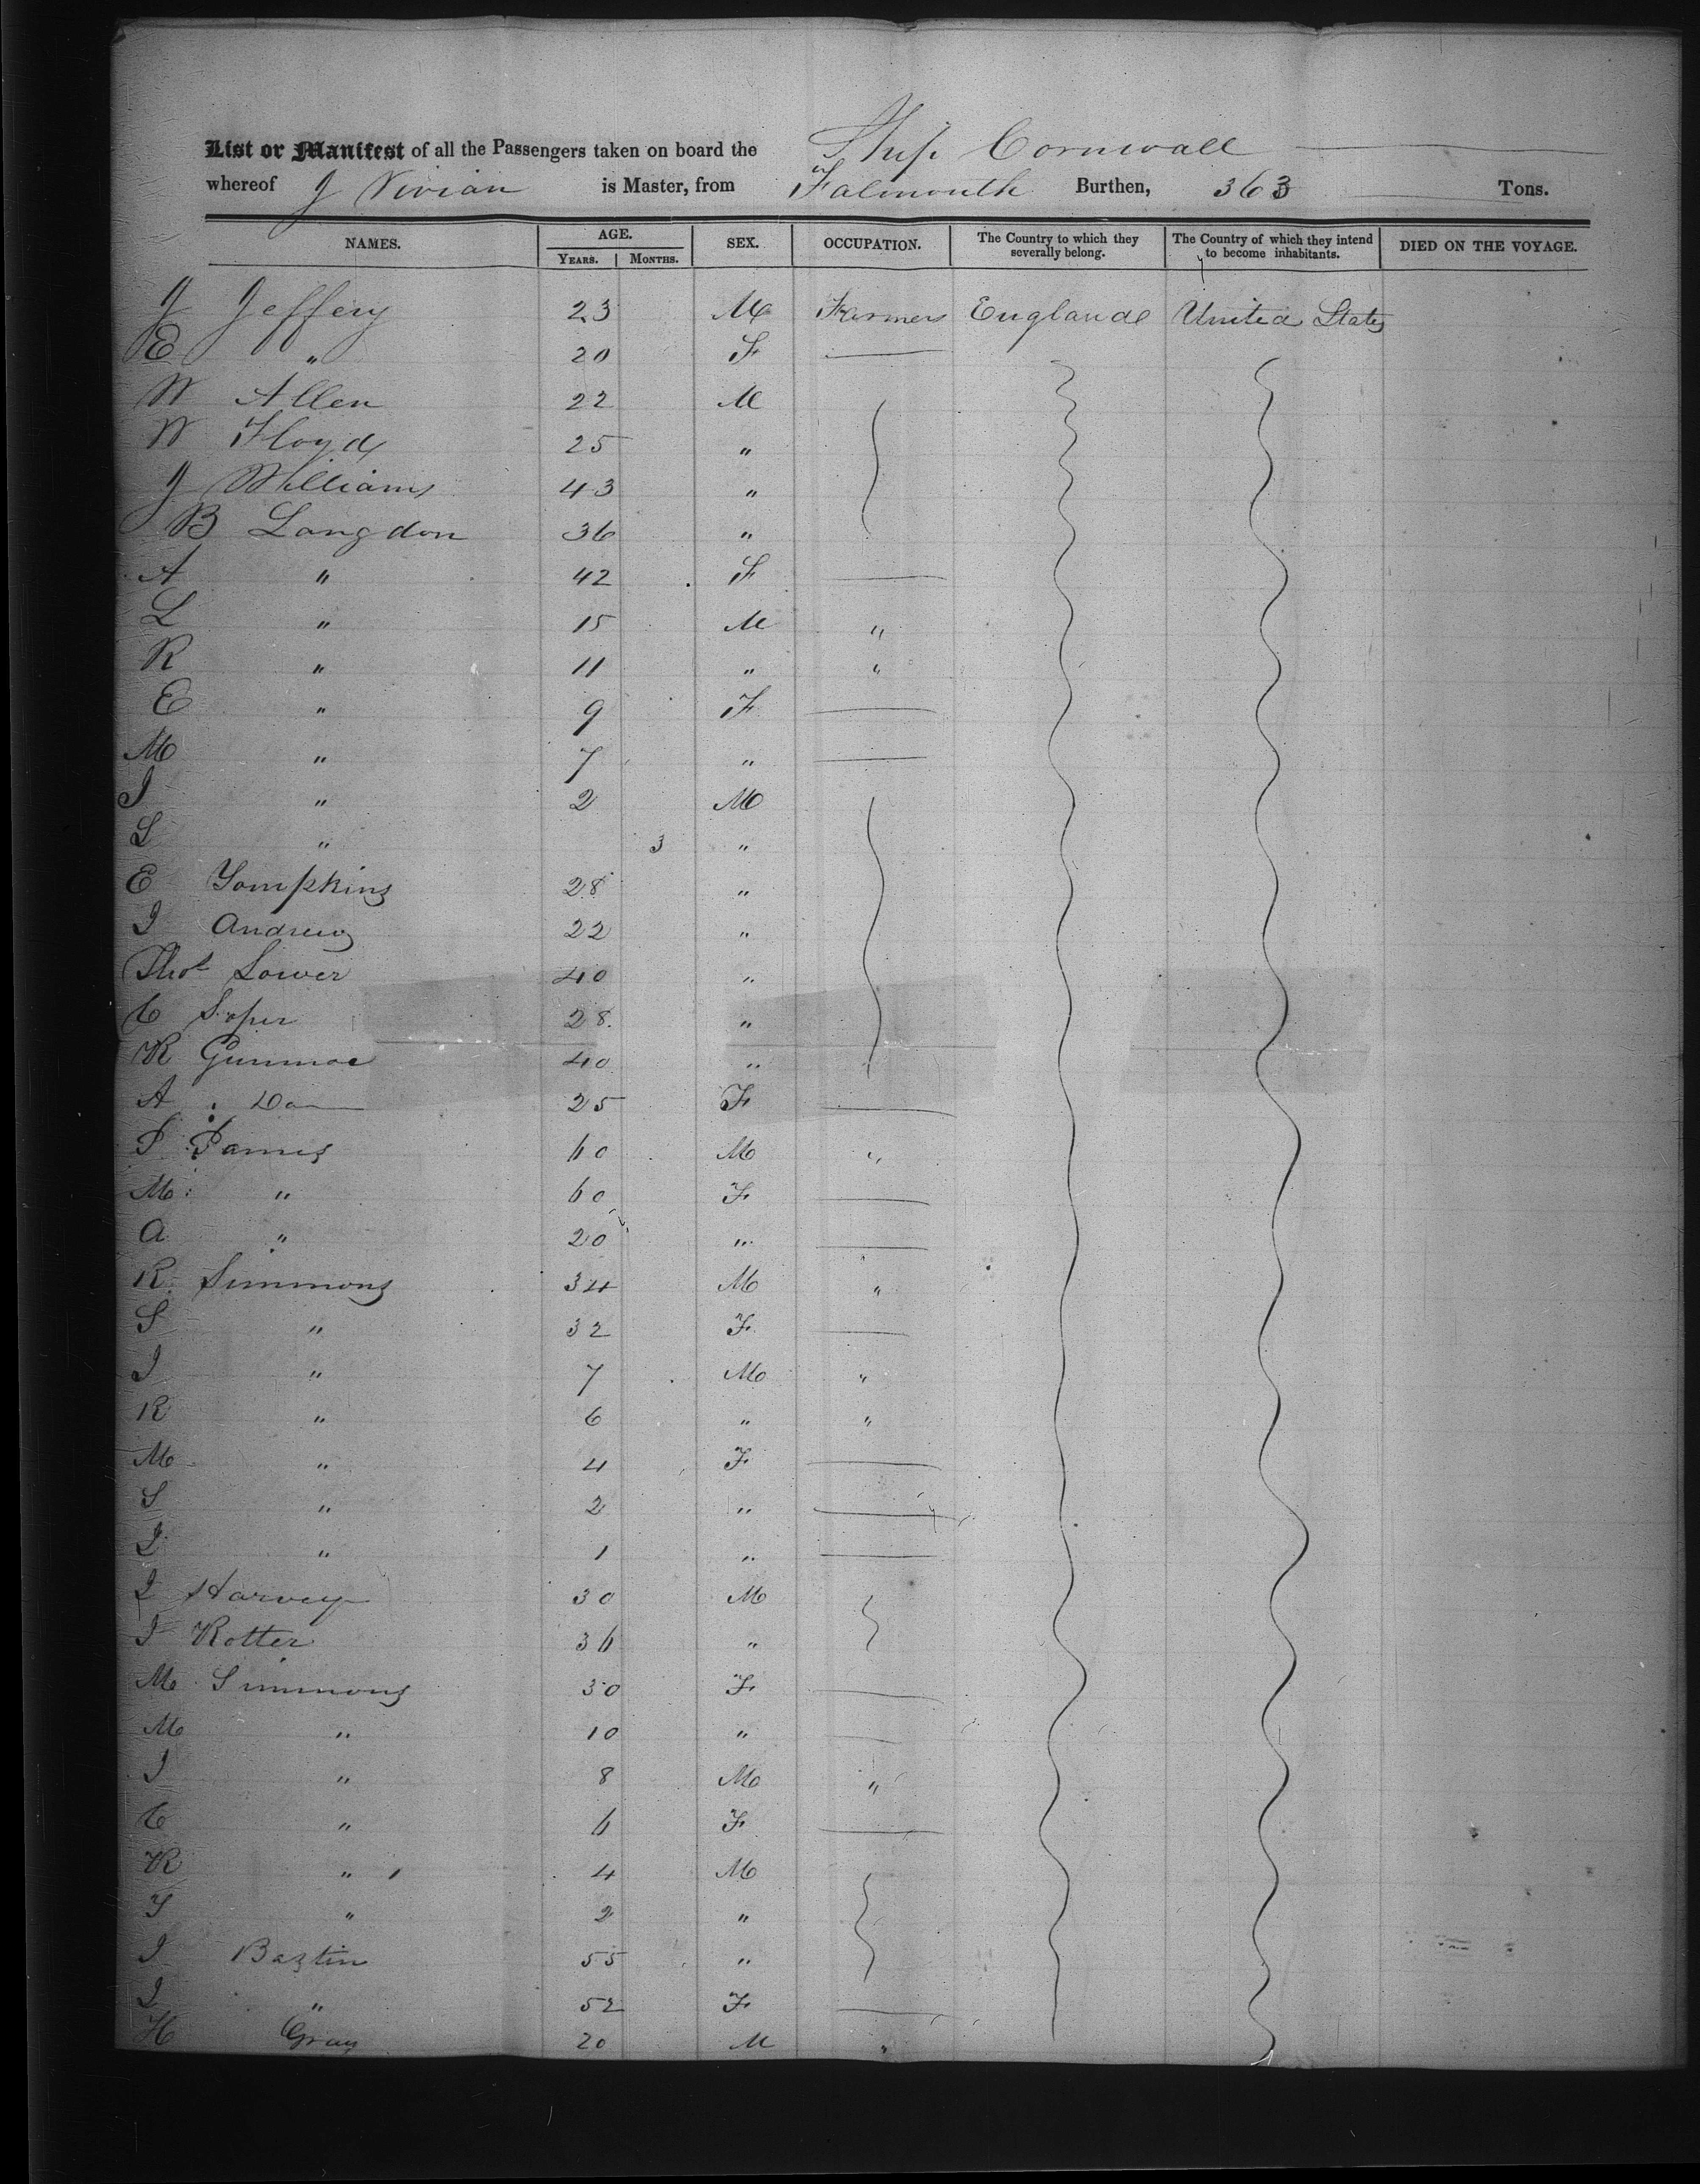 List or Manifest of all the Passengers taken on board the Ship Cornwall
whereof J Vivian is Master, from Falmouth Burthen, 363 Tons.
NAMES. AGE. SEX. OCCUPATION. The Country to which they severally belong. The Country of which they intend to become inhabitants. DIED ON THE VOYAGE.
YEARS. MONTHS.
J Jeffery 23 M Farmers England United States
E " 20 F
W Allen 22 M
W Floyd 25 "
J Williams 43 "
B Langdon 36 "
A " 42 F
L " 15 M "
R " 11 " "
E " 9 F
M " 7 "
J " 2 M
S " 3 "
E Tompkins 28 "
J Andrews 22 "
Thos Lower 40 "
C Soper 28 "
R 40 "
A Do 25 F
P James 60 M "
M " 60 F
A " 20 "
R Simmons 34 M "
S " 32 F
J " 7 M "
R " 6 " "
M " 4 F
S " 2 "
J " 1 "
J Harvey 30 M
J Rotter 36 "
M Simmons 30 F
M " 10 "
J " 8 M "
C " 6 F
R " 4 M
T " 2 "
J Bastin 55 "
J " 52 F
H Gray 20 M "